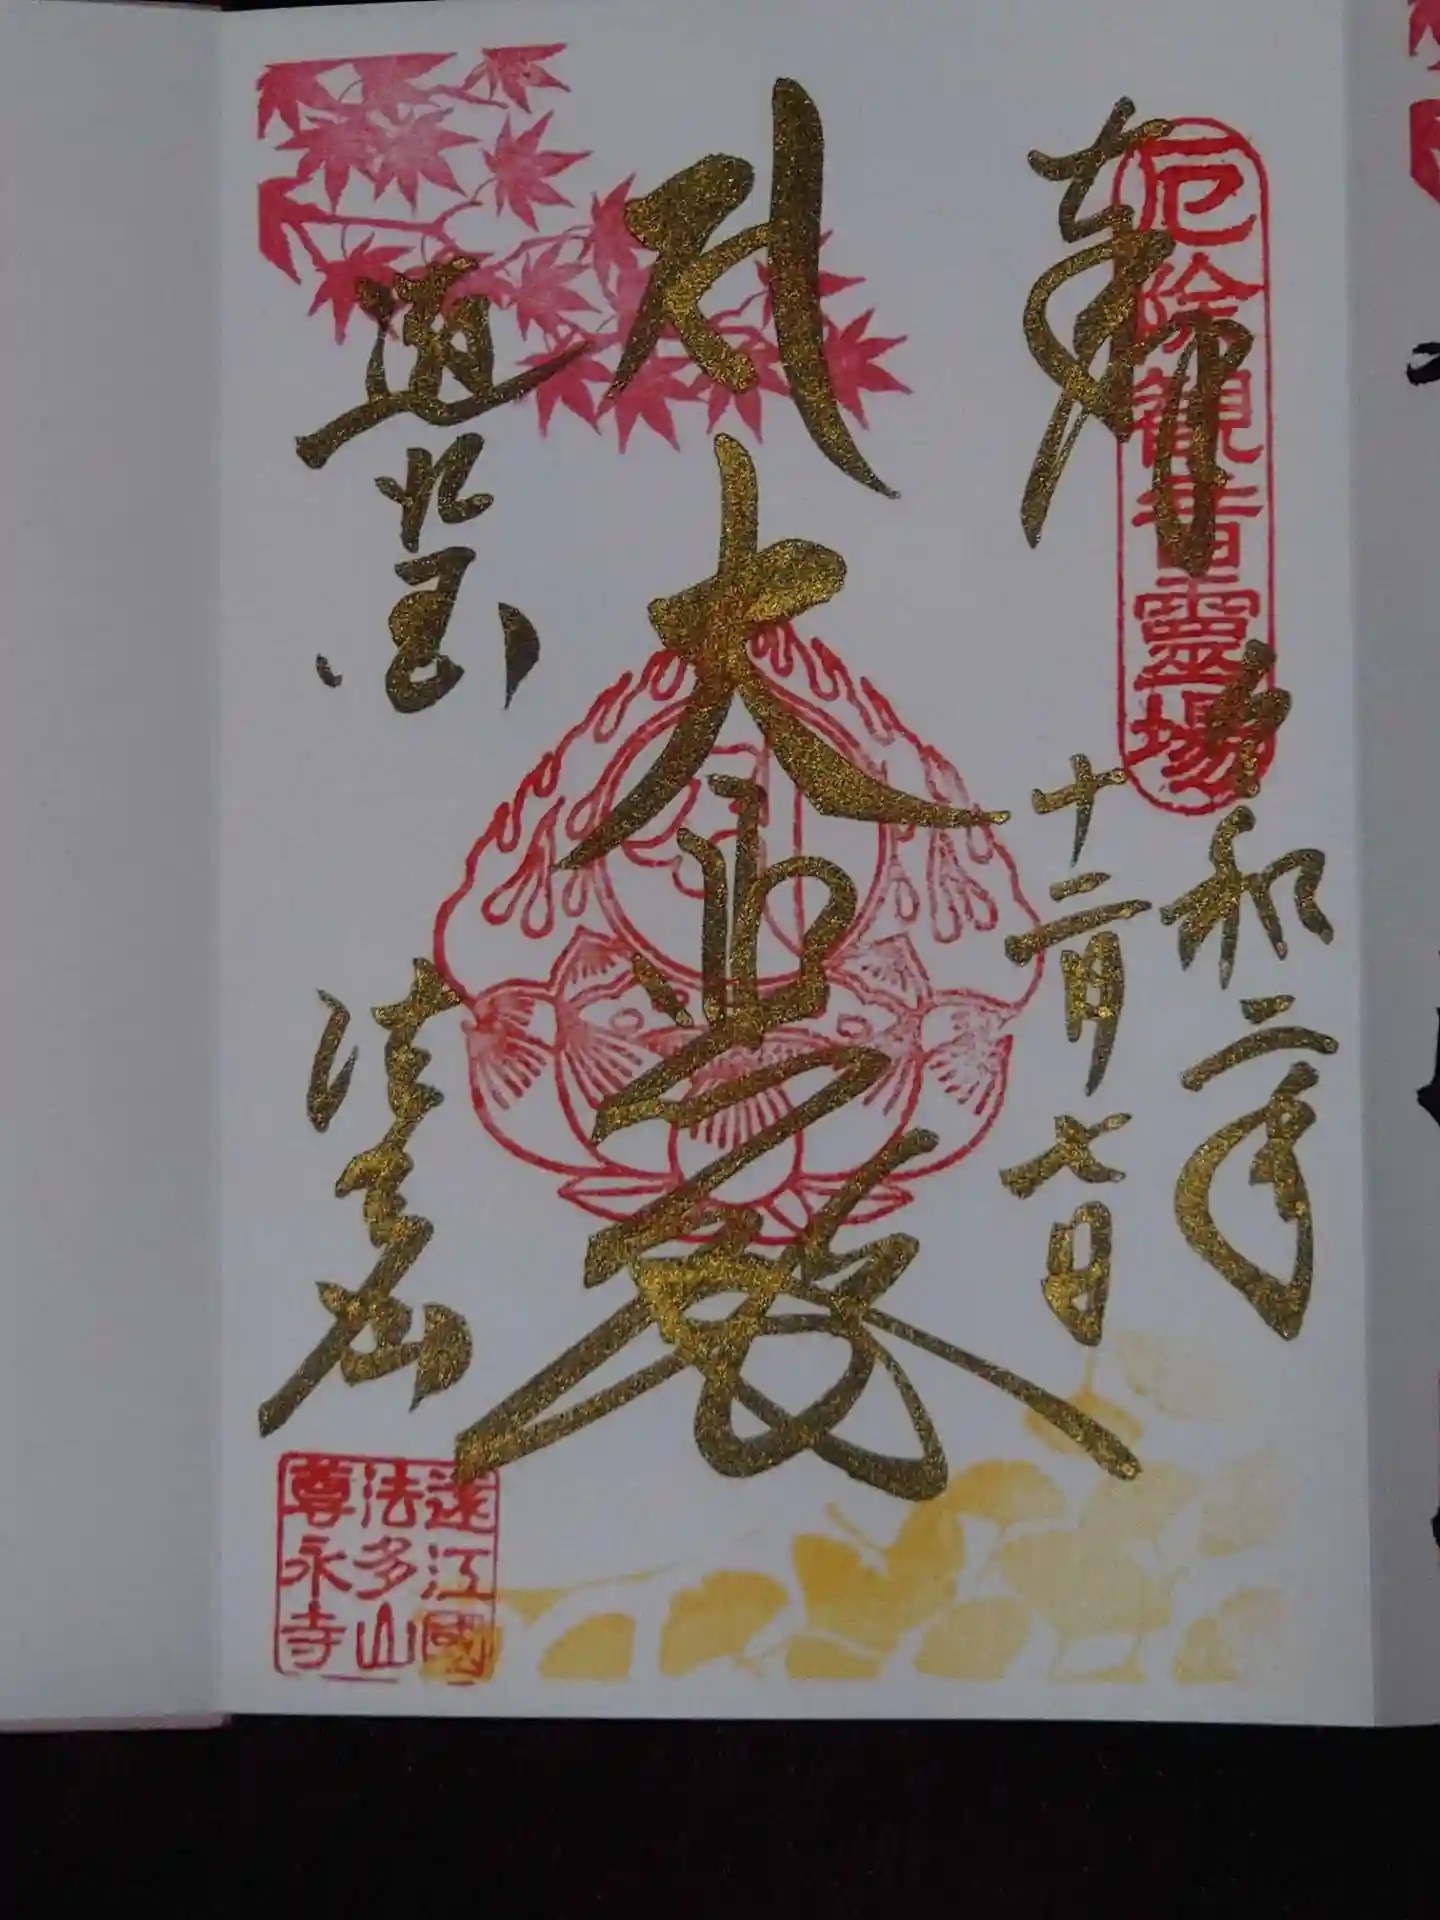 奉拝
厄除観音靈場
令和二年
十二月七日
大
法多山
遠江國
法多山
尊永寺